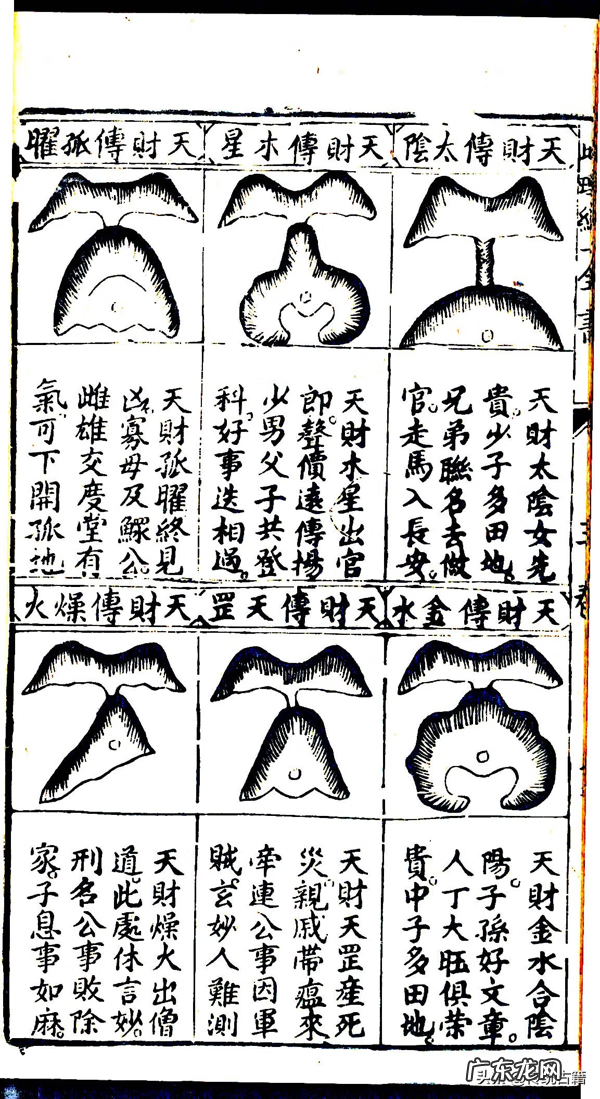 天財傳太陰
天財太陰女先
貴。少子多田地。
兄弟聯名去做
官。走馬入長安。
天財傳水星
天財水星出官
郎。聲價遠傳揚。
少男父子共登
科。好事迭相過。
天財傳孤曜
天財孤曜終見
凶。寡母及鰥公。
雌雄交度堂有
氣。可下開孤地
天財傳金水
天財金水合陰
陽。子孫好文章。
人丁大旺俱榮
貴。中子多田地。
天財傳天罡
天財天罡產死
災。親戚帶瘟來
牽連公事因軍
賊。玄妙人難測
天財傳燥火
天財燥火出僧
道。此處休言妙。
刑名公事敗除
家。子息事如麻。
广东龙网
古籍